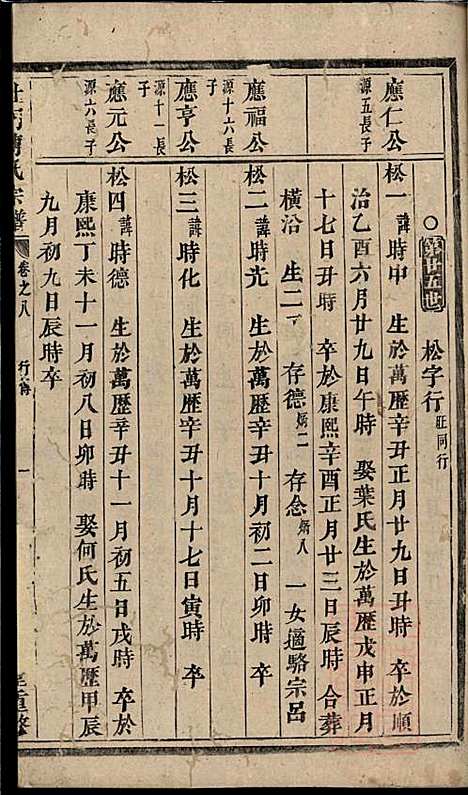 ○第廿五世 松字行 旺同行
應仁公 源五長子
松一 諱時中 生於萬歷辛丑正月廿九日丑時 卒於順
治乙酉六月廿九日午時 娶葉氏生於萬歷戊申正月
十七日丑時 卒於康熙辛酉正月廿三日辰時 合葬
橫沿 生二子 存德炳二 存念炳八 一女適駱宗呂
應福公 源十六長子
松二 諱時光 生於萬歷辛丑十月初二日卯時 卒
應亨公 源十一長子
松三 諱時化 生於萬歷辛丑十月十七日寅時 卒
應元公 源六長子
松四 諱時德 生於萬歷辛丑十一月初五日戌時 卒於
康熙丁未十一月初八日卯時 娶何氏生於萬歷甲辰
九月初九日辰時卒
氏宗譜 卷之八 行傳 一 重修